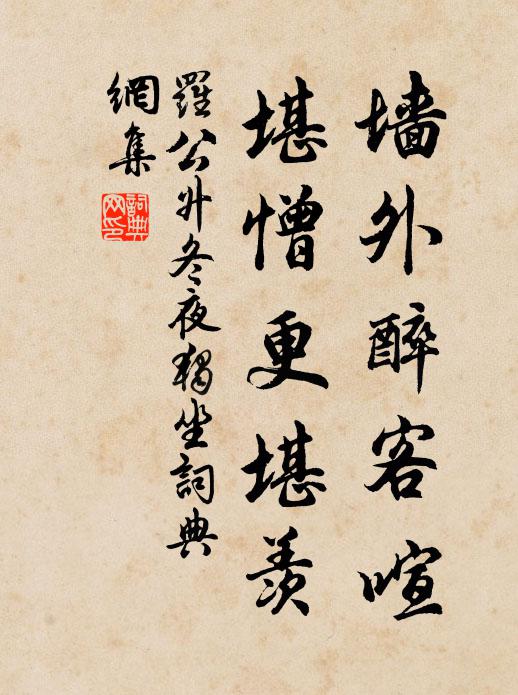 墙外醉客喧
堪憎更堪羡
羅公升冬夜獨坐詞典
網集
詞典
网印